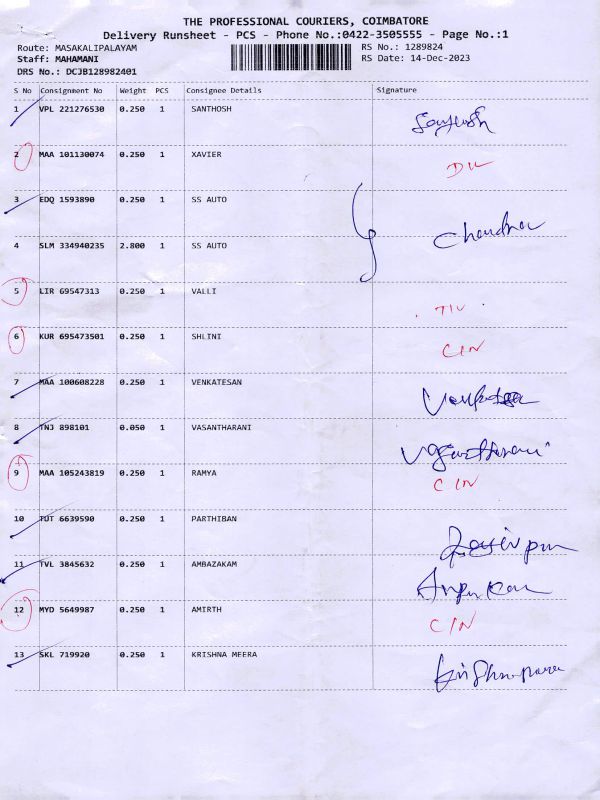 THE PROFESSIONAL COURIERS, COIMBATORE
Delivery Runsheet - PCS - Phone No.:0422-3505555 - Page No.:1
Route: MASAKALIPALAYAM RS No.: 1289824
Staff: MAHAMANI RS Date: 14-Dec-2023
DRS No.: DCJB128982401
S No Consignment No Weight PCS Consignee Details Signature
1 VPL 221276530 0.250 1 SANTHOSH
2 MAA 101130074 0.250 1 XAVIER
3 EDQ 1593890 0.250 1 SS AUTO
4 SLM 334940235 2.800 1 SS AUTO Chandra
5 LIR 69547313 0.250 1 VALLI
6 KUR 695473501 0.250 1 SHLINI CIN
7 MAA 100608228 0.250 1 VENKATESAN
8 TNJ 898101 0.050 1 VASANTHARANI
9 MAA 105243819 0.250 1 RAMYA CIN
10 TUT 6639590 0.250 1 PARTHIBAN
11 TVL 3845632 0.250 1 AMBAZAKAM
12 MYD 5649987 0.250 1 AMIRTH CIN
13 SKL 719920 0.250 1 KRISHNA MEERA